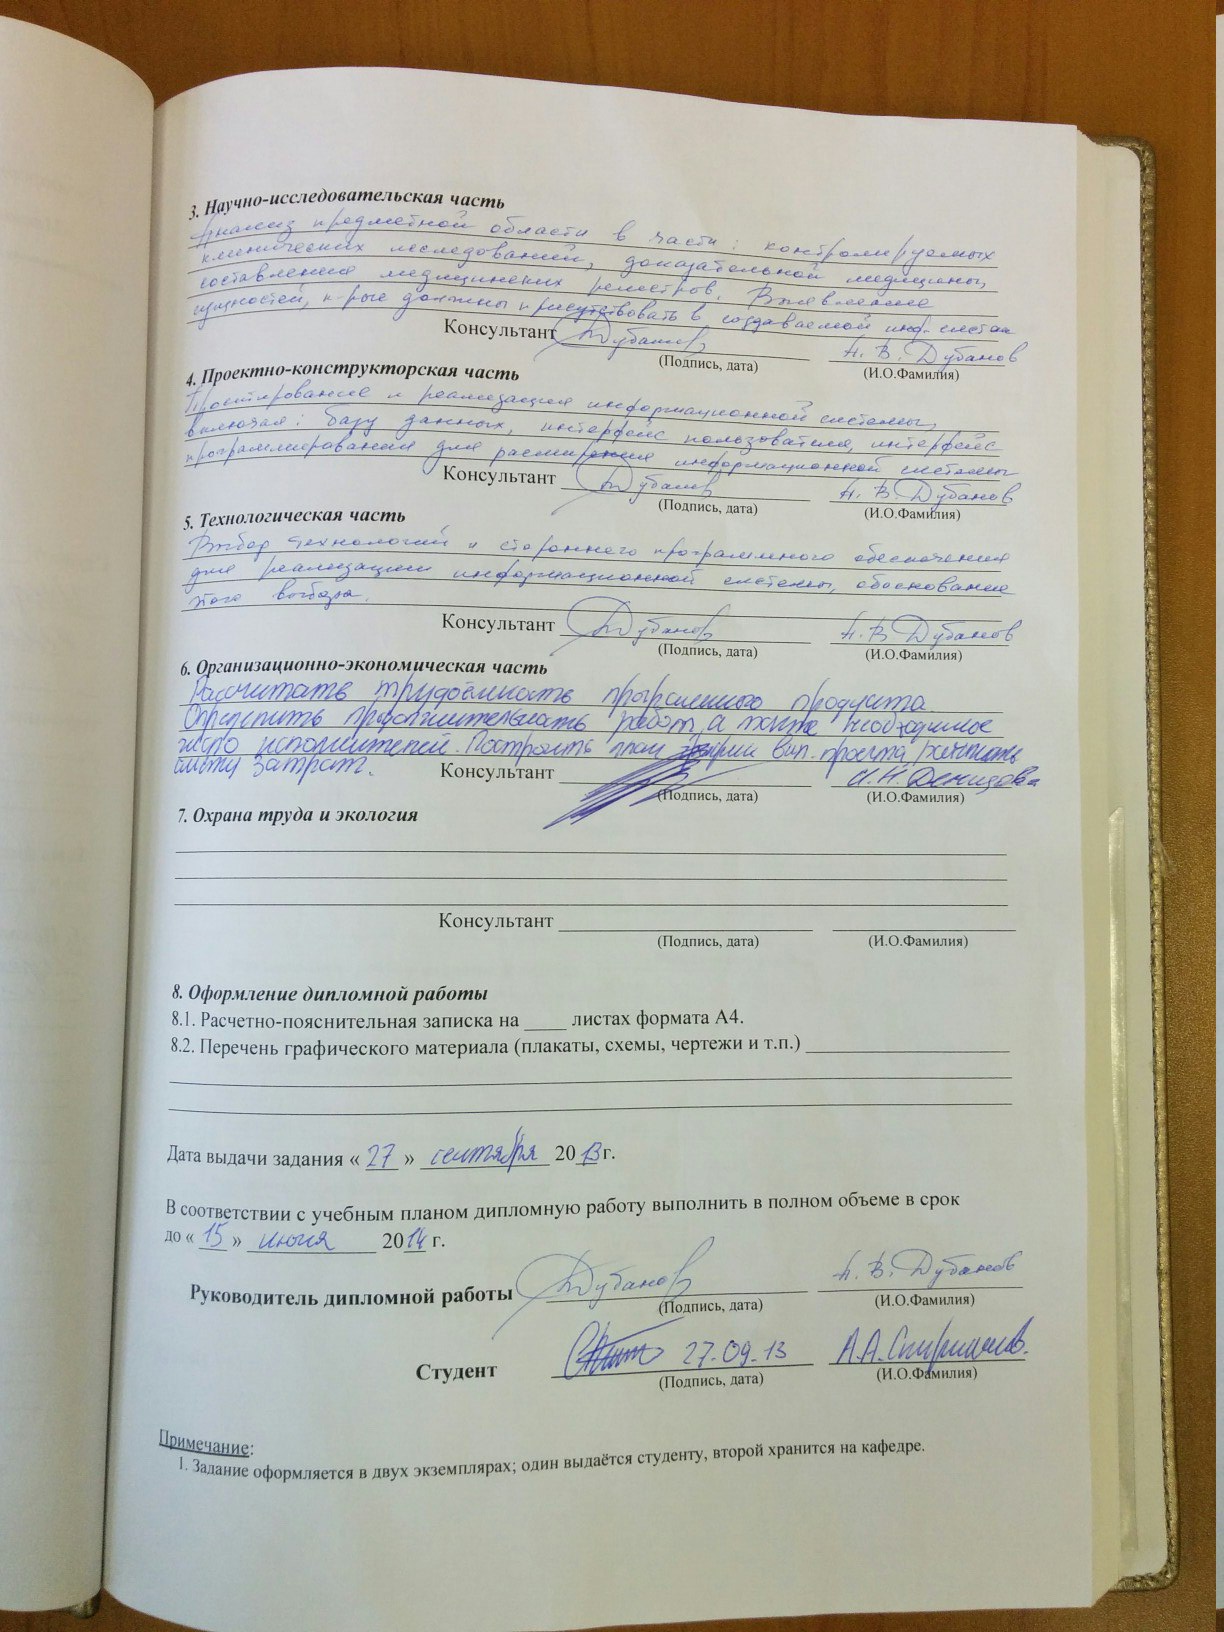 3. Научно-исследовательская часть
Анализ предметной области в части: контролируемых
клинических исследований, доказательной медицины,
составления медицинских регистров. Выявление
сущностей, к-рые должны присутствовать в создаваемой инф. систем
Консультант Дубанов А. В. Дубанов
(Подпись, дата) (И.О.Фамилия)
4. Проектно-конструкторская часть
Проектирование и реализация информационной системы,
включая: базу данных, интерфейс пользователя, интерфейс
программирования для расширения информационной системы
Консультант Дубанов А. В. Дубанов
(Подпись, дата) (И.О.Фамилия)
5. Технологическая часть
Выбор технологий и стороннего программного обеспечения
для реализации информационной системы, обоснование
этого выбора.
Консультант Дубанов А. В. Дубанов
(Подпись, дата) (И.О.Фамилия)
6. Организационно-экономическая часть
Рассчитать трудоёмкость программного продукта
Определить продолжительность работ, а также необходимое
число исполнителей. Построить план вып. проекта, рассчитать
смету затрат.
Консультант Н. Н. Денисова
(Подпись, дата) (И.О.Фамилия)
7. Охрана труда и экология
Консультант
(Подпись, дата) (И.О.Фамилия)
8. Оформление дипломной работы
8.1. Расчетно-пояснительная записка на ____ листах формата А4.
8.2. Перечень графического материала (плакаты, схемы, чертежи и т.п.)
Дата выдачи задания « 27 » сентября 2013г.
В соответствии с учебным планом дипломную работу выполнить в полном объеме в срок
до « 15 » июня 2014 г.
Руководитель дипломной работы Дубанов А. В. Дубанов
(Подпись, дата) (И.О.Фамилия)
Студент 27.09.13 А.А.
(Подпись, дата) (И.О.Фамилия)
Примечание:
1. Задание оформляется в двух экземплярах; один выдаётся студенту, второй хранится на кафедре.